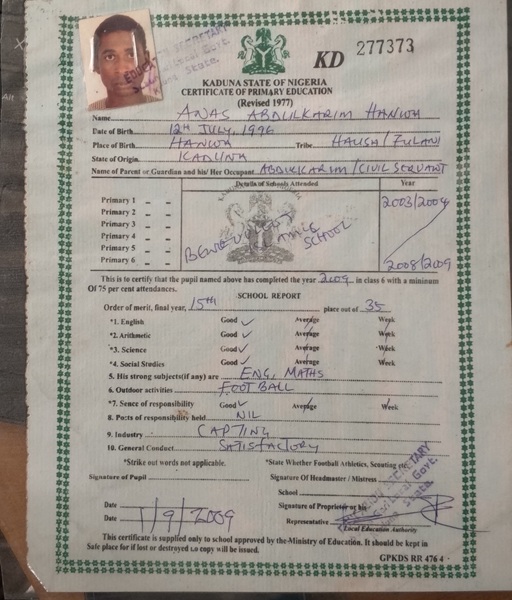 KD 277373
KADUNA STATE OF NIGERIA
CERTIFICATE OF PRIMARY EDUCATION
(Revised 1977)
Name ANAS ABDULKARIM HANWA
Date of Birth 12th JULY, 1996
Place of Birth HANWA Tribe HAUSA/FULANI
State of Origin KADUNA
Name of Parent or Guardian and his/ Her Occupant ABDULKARIM/CIVIL SERVANT
Details of Schools Attended Year
Primary 1 - - 2003/2004
Primary 2 - -
Primary 3 - -
Primary 4 - -
Primary 5 - - SCHOOL
Primary 6 - - 2008/2009
This is to certify that the pupil named above has completed the year 2009 in class 6 with a minimum
Of 75 per cent attendances.
SCHOOL REPORT
Order of merit, final year, 15th place out of 35
*1. English Good Average Week
*2. Arithmetic Good Average Week
*3. Science Good Average Week
*4. Social Studies Good Average Week
5. His strong subjects(if any) are ENG, MATHS
6. Outdoor activities FOOTBALL
*7. Sence of responsibility Good Average Week
8. Posts of responsibility held NIL
9. Industry CAPTING
10. General Conduct SATISFACTORY
*Strike out words not applicable. *State Whether Football Athletics, Scouting etc.
Signature of Pupil Signature Of Headmaster / Mistress
School
Date Signature of Proprietor or his
Date 1/9/2009 Representative
Local Education Authority
This certificate is supplied only to school approved by the Ministry of Education. It should be kept in
Safe place for if lost or destroyed no copy will be issued.
GPKDS RR 476 4